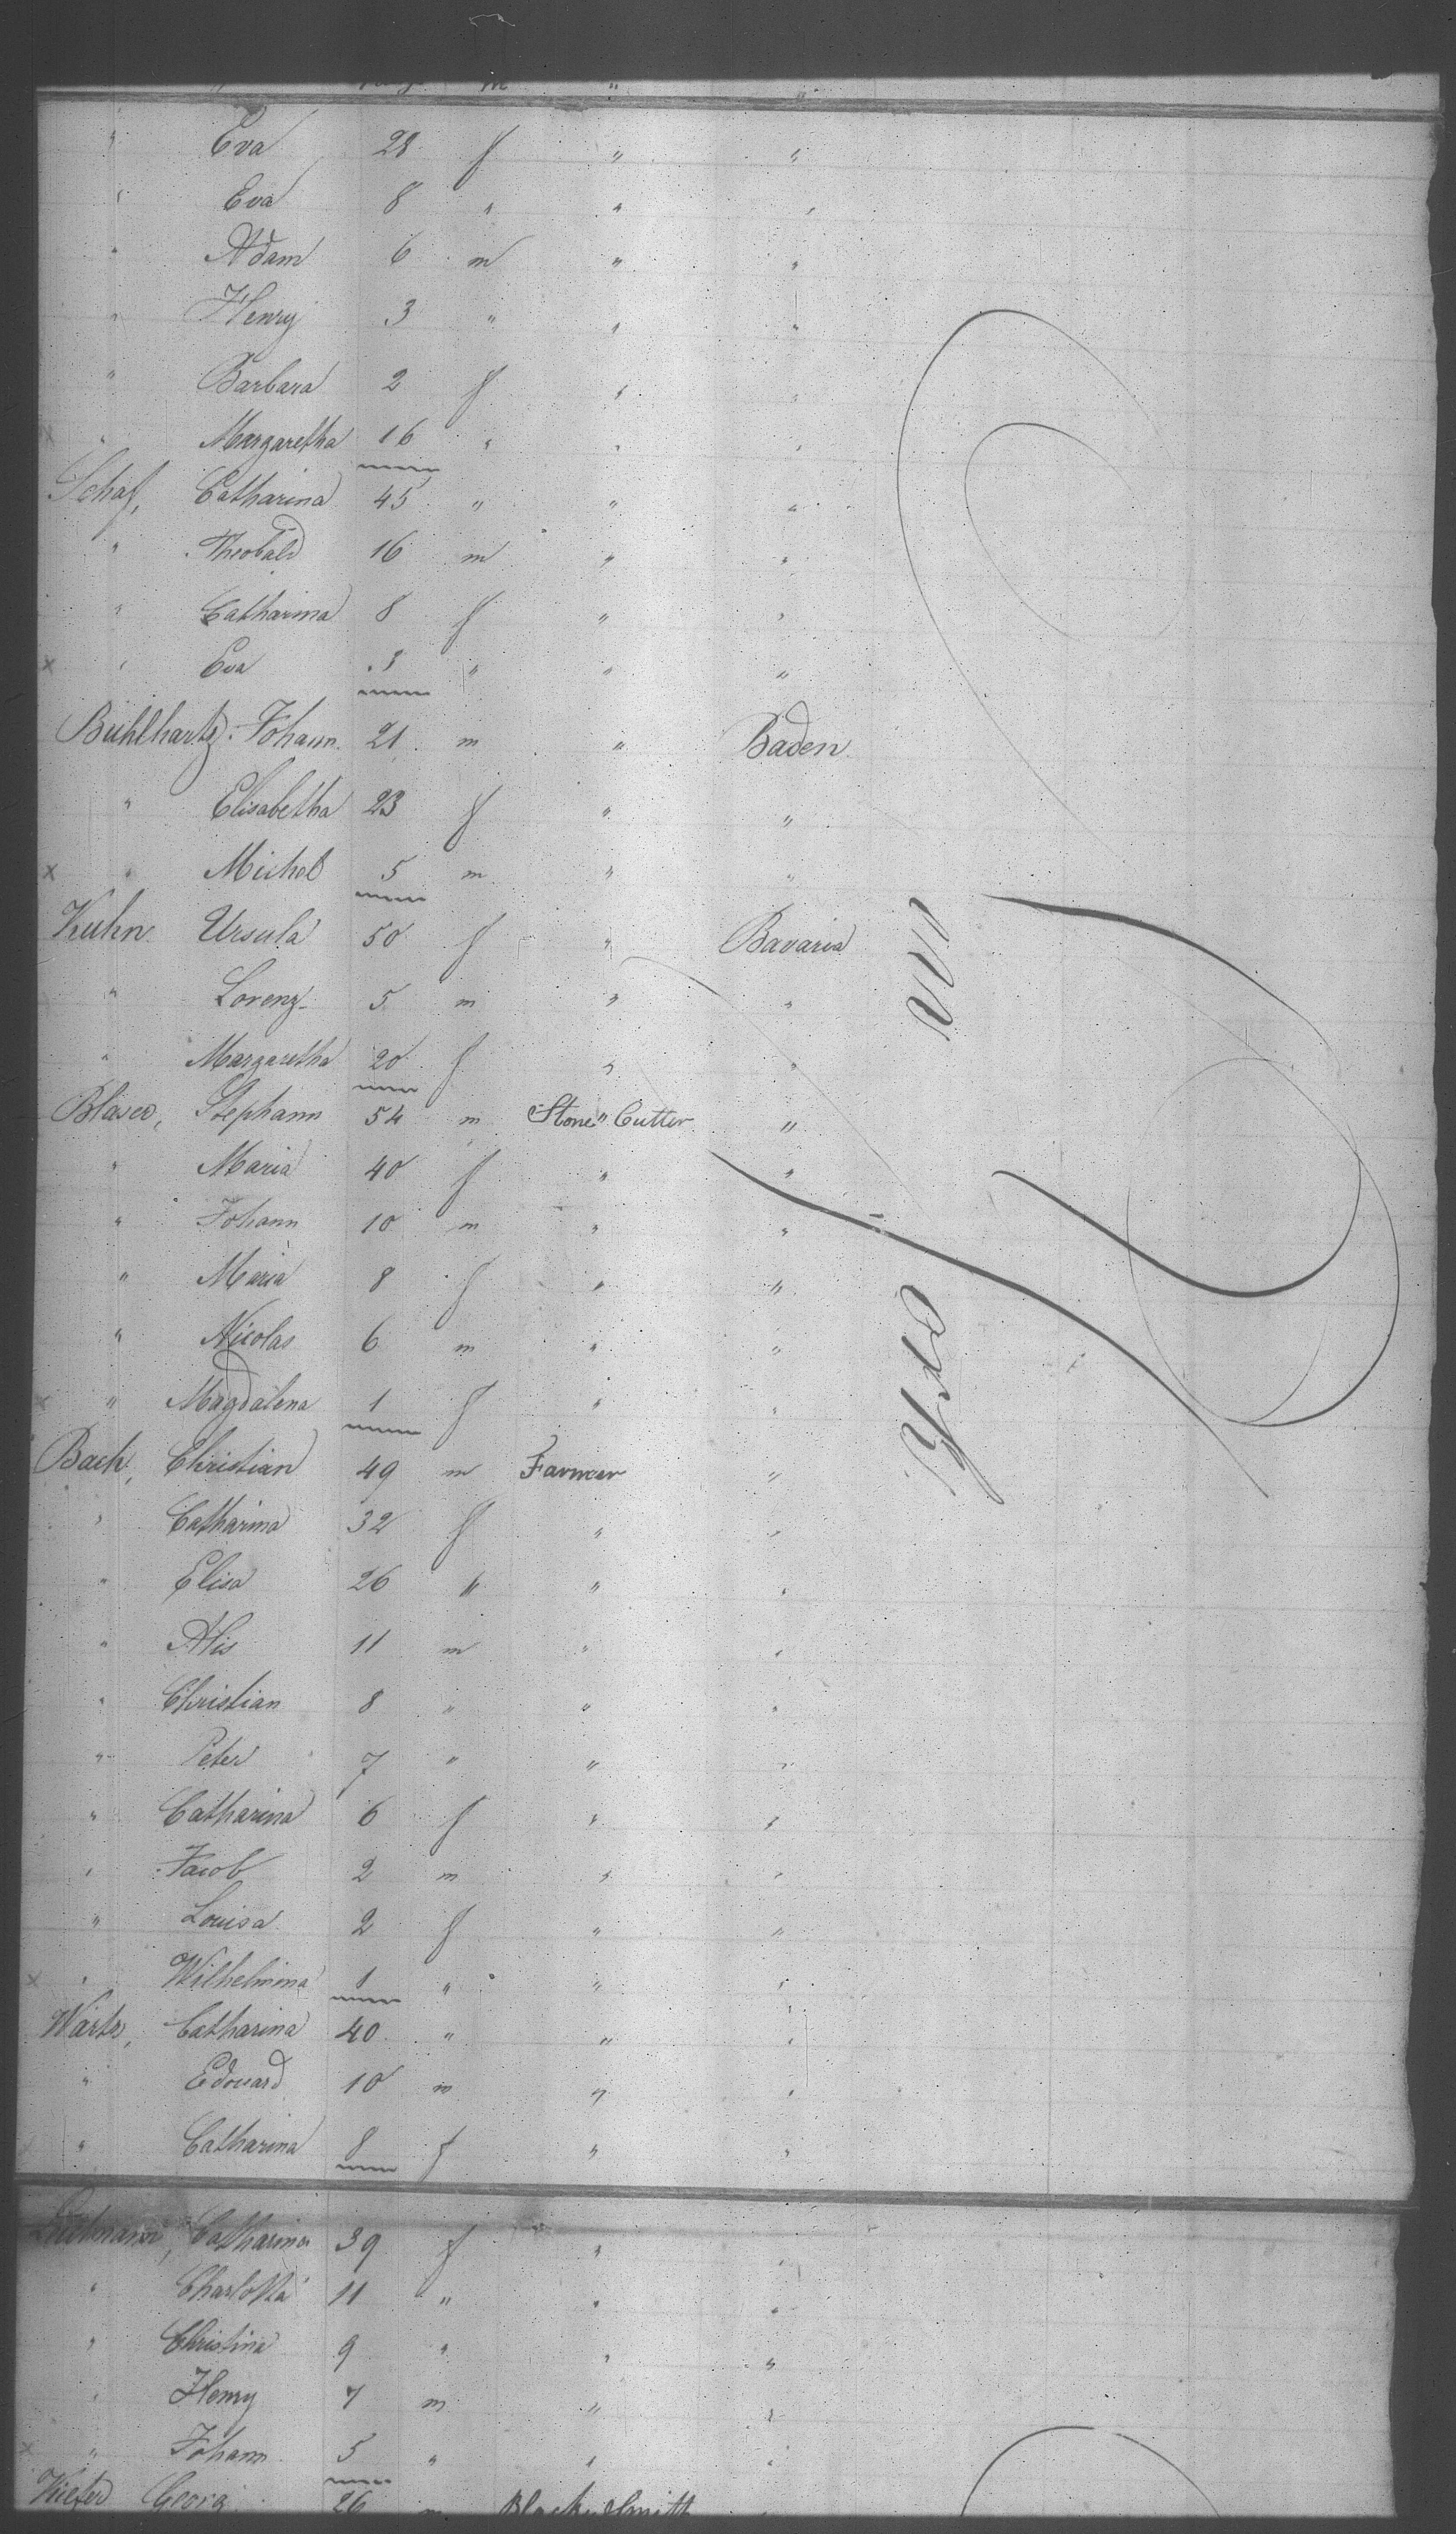 " Eva 28 f " "
" Eva 8 " " "
" Adam 6 m " "
" Henry 3 " " "
" Barbara 2 f " "
x " Margaretha 16 " " "
Schaf, Catharina 45 " " "
" Theobald 16 m " "
" Catharina 8 f " "
x " Eva " " "
Buhlhartz, Johann 21 m " Baden
" Elisabetha 23 f " "
x " Michel 5 m " "
Kuhn Ursula 50 f " Bavaria
" Lorenz 5 m " "
" Margaretha 20 f " "
Stephann 54 m Stone " Cutter "
" Maria 40 f " "
" Johann 10 m " "
" Maria 8 f " "
" Nicolas 6 m " "
x " Magdalena 1 f " "
Bach, Christian 49 m Farmer "
" Catharina 32 f " "
" Elisa 26 " " "
" 11 m " "
" Christian 8 " " "
" Peter 7 " " "
" Catharina 6 f " "
" Jacob 2 m " "
" Louisa 2 f " "
x " Wilhelmina 1 " " "
Catharina 40 " " "
" Edouard 10 m " "
" Catharina 8 f " "
Catharina 39 f " "
" Charlotta 11 " " "
" Christina 9 " " "
" Henry 7 m " "
x " Johann 5 " " "
Georg 26 m Black " Smith "